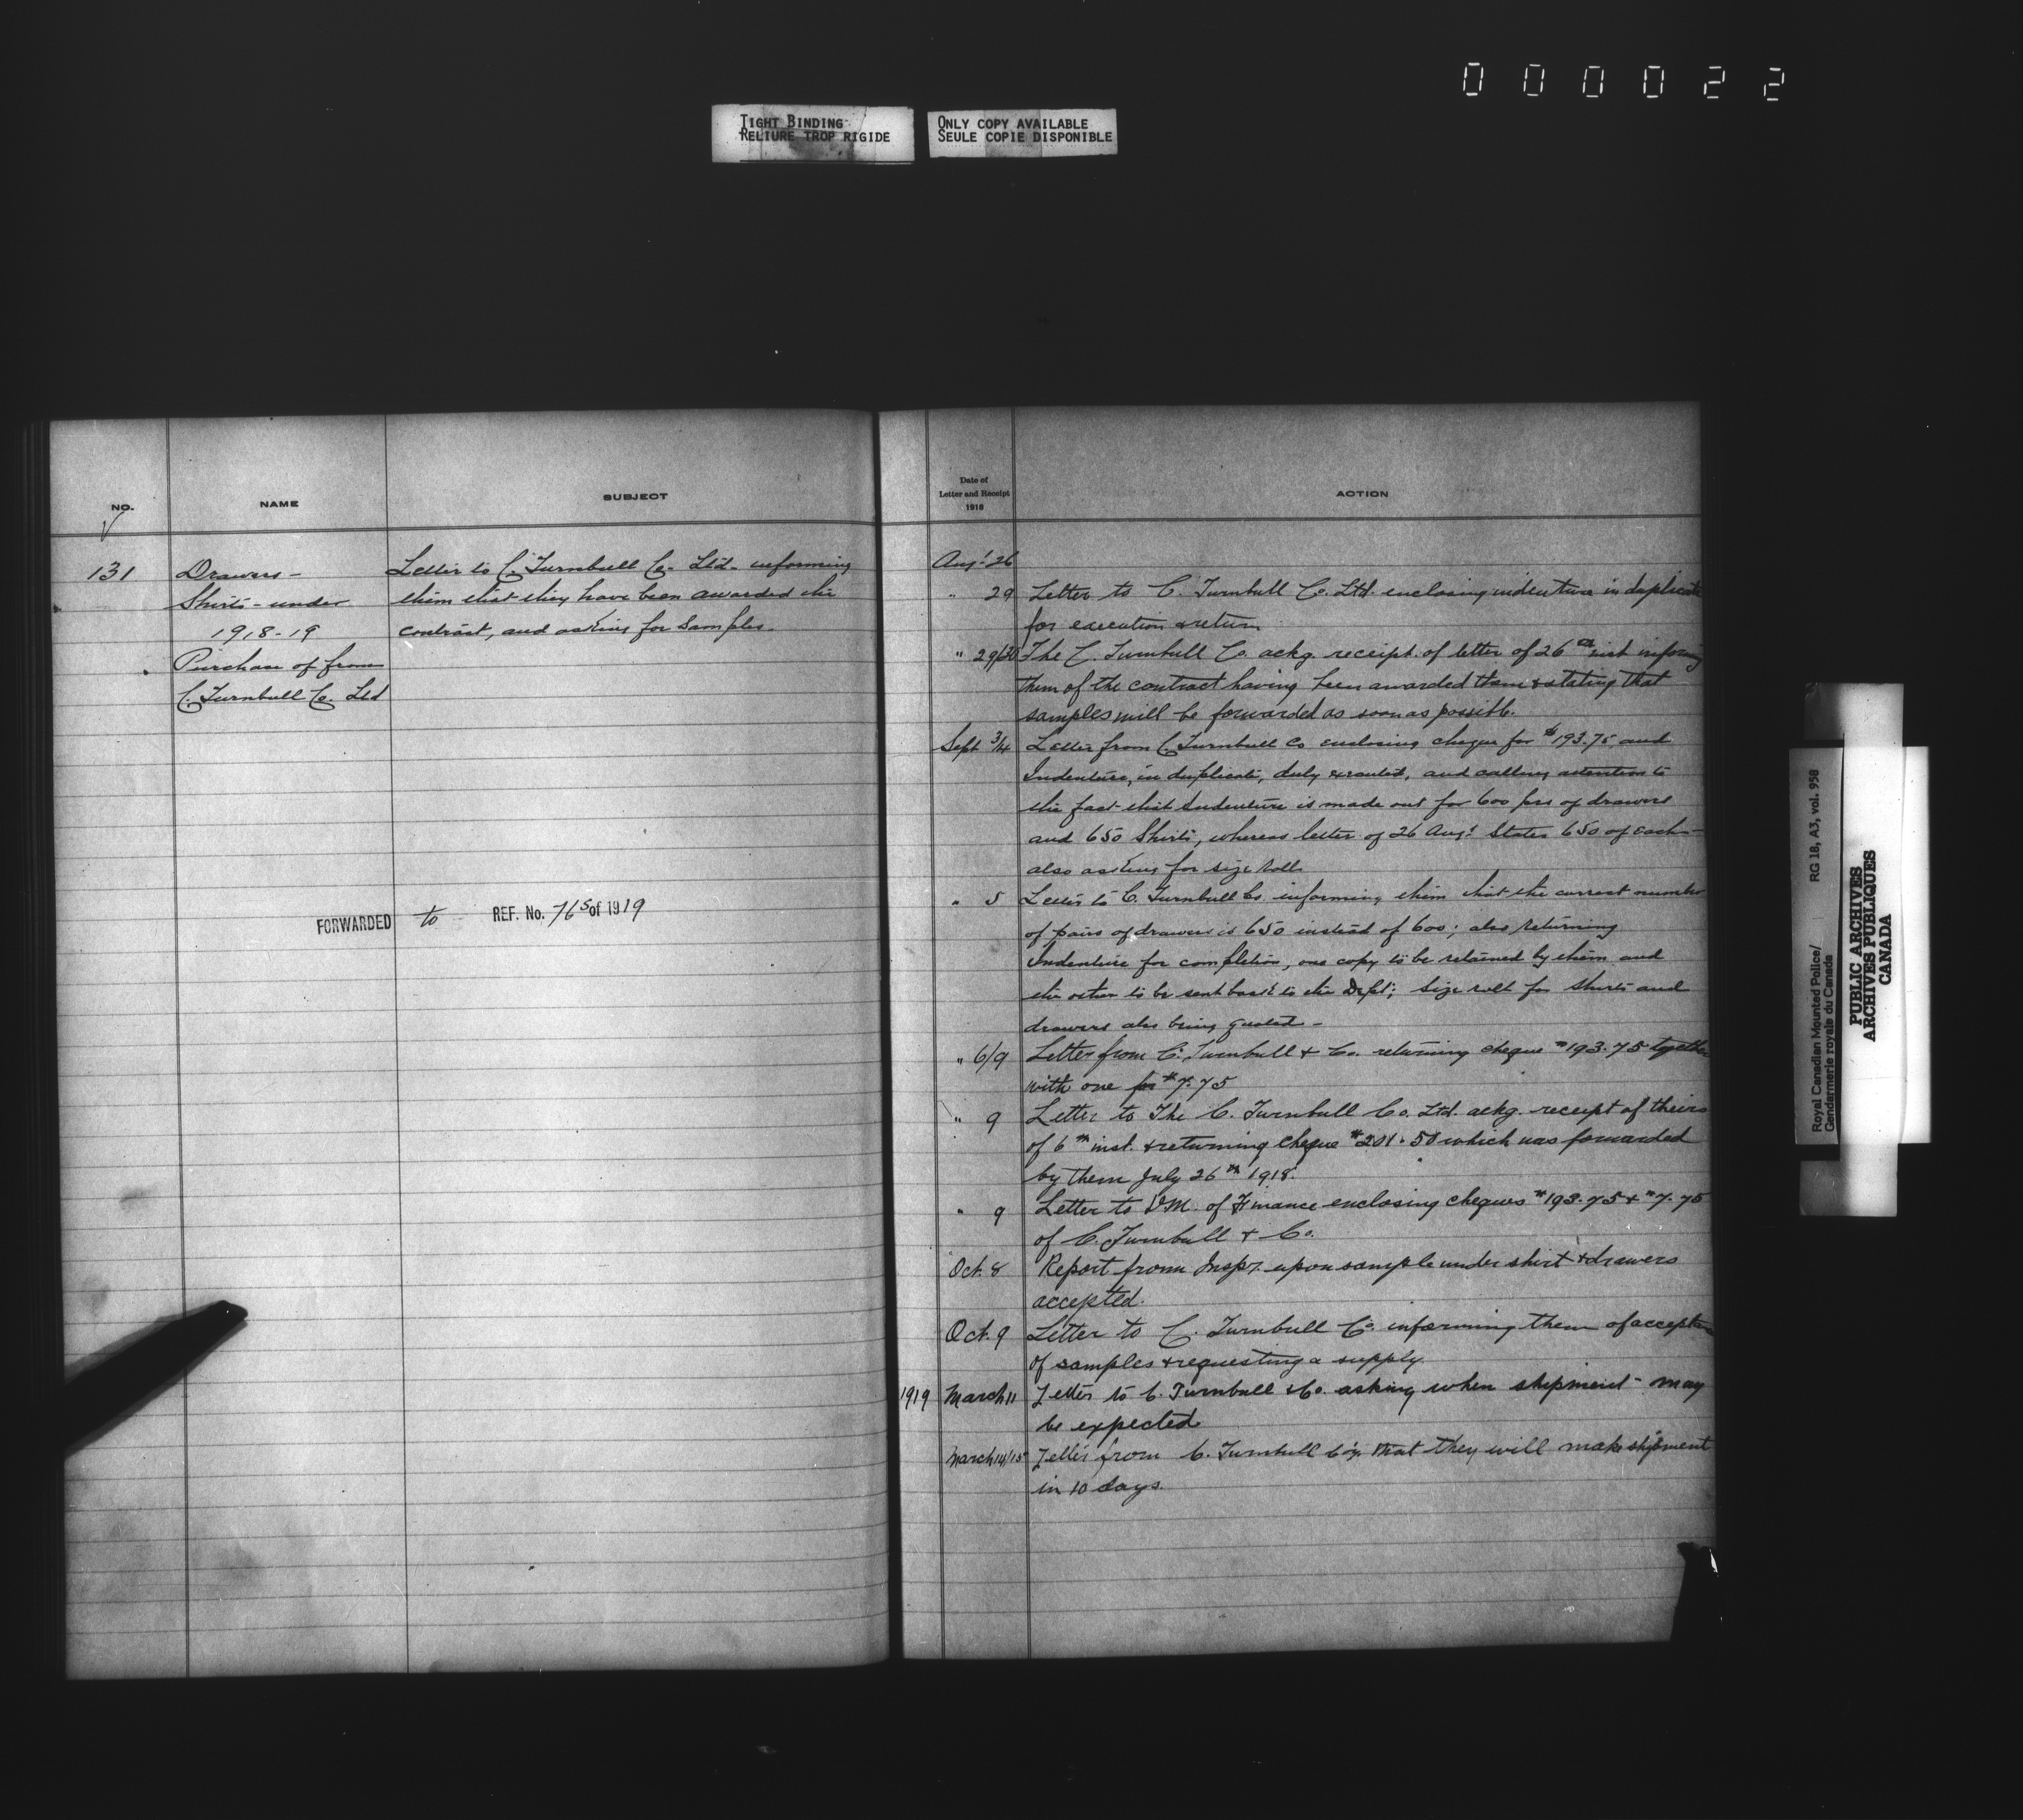 000022
TIGHT BINDING
RELIURE TROP RIGIDE
ONLY COPY AVAILABLE
SEULE COPIE DISPONIBLE
NO.
NAME
SUBJECT
131
Drawers -
Shirts - under
1918-19
Purchase of from
C. Turnbull Co. Ltd
Letter to C. Turnbull Co. Ltd. informing
them that they have been awarded the
contract, and asking for samples.
FORWARDED to REF. No. 765 of 1919
Date of
Letter and Receipt
1918
ACTION
Aug. 26
" 29 Letter to C. Turnbull Co. Ltd. enclosing indenture in duplicate
for execution & return
" 29/30 The C. Turnbull Co. ackg. receipt of letter of 26th inst informing
them of the contract having been awarded them & stating that
samples will be forwarded as soon as possible.
Sept 3/4 Letter from C. Turnbull Co enclosing cheque for $193.75 and
Indenture, in duplicate, duly executed, and calling attention to
the fact that Indenture is made out for 600 prs of drawers
and 650 Shirts, whereas letter of 26 Aug. States 650 of each -
also asking for size roll
" 5 Letter to C. Turnbull Co. informing them that the correct number
of pairs of drawers is 650 instead of 600; also returning
Indenture for completion, one copy to be retained by them and
the other to be sent back to the Dept; Size roll for shirts and
drawers also being quoted -
" 6/9 Letter from C. Turnbull & Co. returning cheque $193.75 together
with one for $7.75
" 9 Letter to The C. Turnbull Co. Ltd. ackg. receipt of theirs
of 6th inst. & returning cheque $201.50 which was forwarded
by them July 26th 1918.
" 9 Letter to D.M. of Finance enclosing cheques $193.75 & $7.75
of C. Turnbull & Co.
Oct. 8 Report from Inspr. upon sample under shirt & drawers
accepted.
Oct. 9 Letter to C. Turnbull Co. informing them of
of samples & requesting a supply.
1919 March 11 Letter to C. Turnbull & Co. asking when shipment may
be expected
March 14/15 Letter from C. Turnbull that they will make shipment
in 10 days.
Royal Canadian Mounted Police/
Gendarmerie royale du Canada
RG 18, A3, vol. 958
PUBLIC ARCHIVES
ARCHIVES PUBLIQUES
CANADA